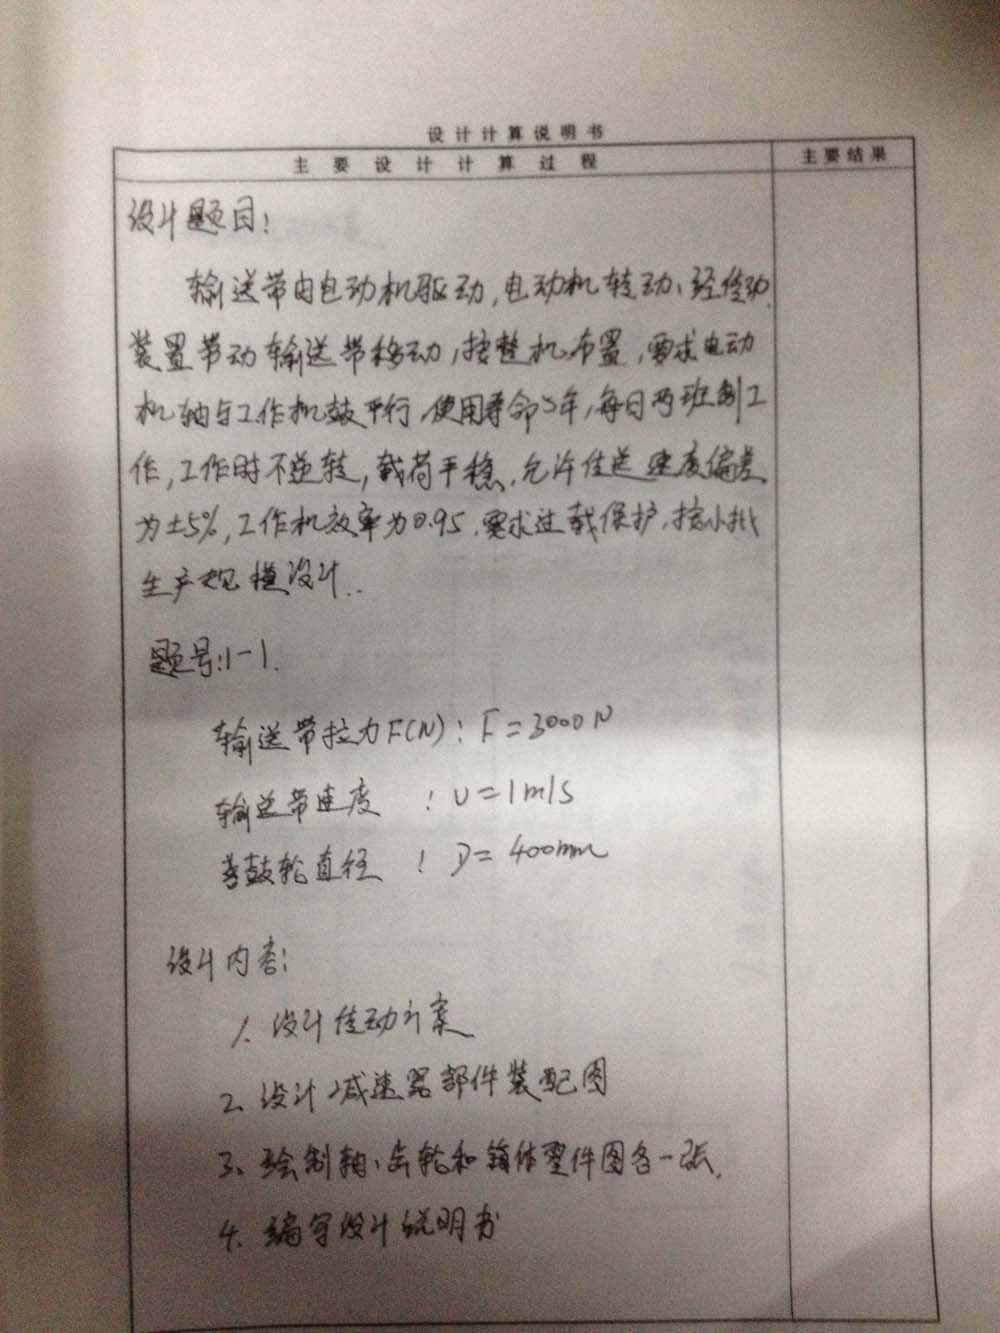 设计计算说明书
主要设计计算过程 主要结果
设计题目:
输送带由电动机驱动,电动机转动、经传动
装置带动输送带移动,按整机布置,要求电动
机轴与工作机鼓平行,使用寿命5年,每日两班制工
作,工作时不逆转,载荷平稳,允许传送速度偏差
为±5%,工作机效率为0.95.要求过载保护,按小批
生产规模设计..
题号:1-1.
输送带拉力F(N):F=3000N
输送带速度 :υ=1m/s
鼓轮直径 :D=400mm
设计内容:
1.设计传动方案
2.设计减速器部件装配图
3.绘制轴、齿轮和箱体零件图各一张.
4.编写设计说明书